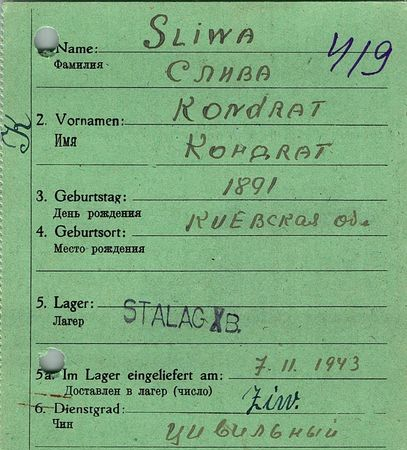 Name: SLIWA
Фамилия СЛИВА
2. Vornamen: KONDRAT
Имя КОНДRАТ
3. Geburtstag: 1891
День рождения
4. Geburtsort: КИЕВСКАЯ об
Место рождения
5. Lager: STALAG XB.
Лагер
5a. Im Lager eingeliefert am: 7. 11. 1943
Доставлен в лагер (число)
6. Dienstgrad: Ziw.
Чин цивильный